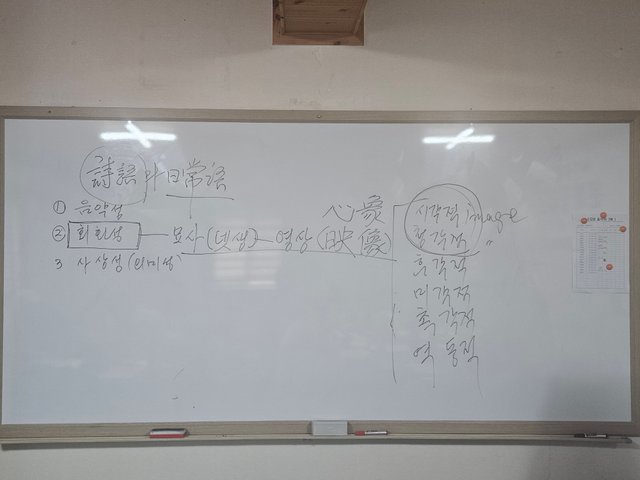 詩語와 日常語
① 음악성
② 회화성 — 묘사(뎃생) — 영상(映像)
心象
3 사상성(의미성)
시각적 image
청각적 〃
후각적
미각적
촉각적
역동적